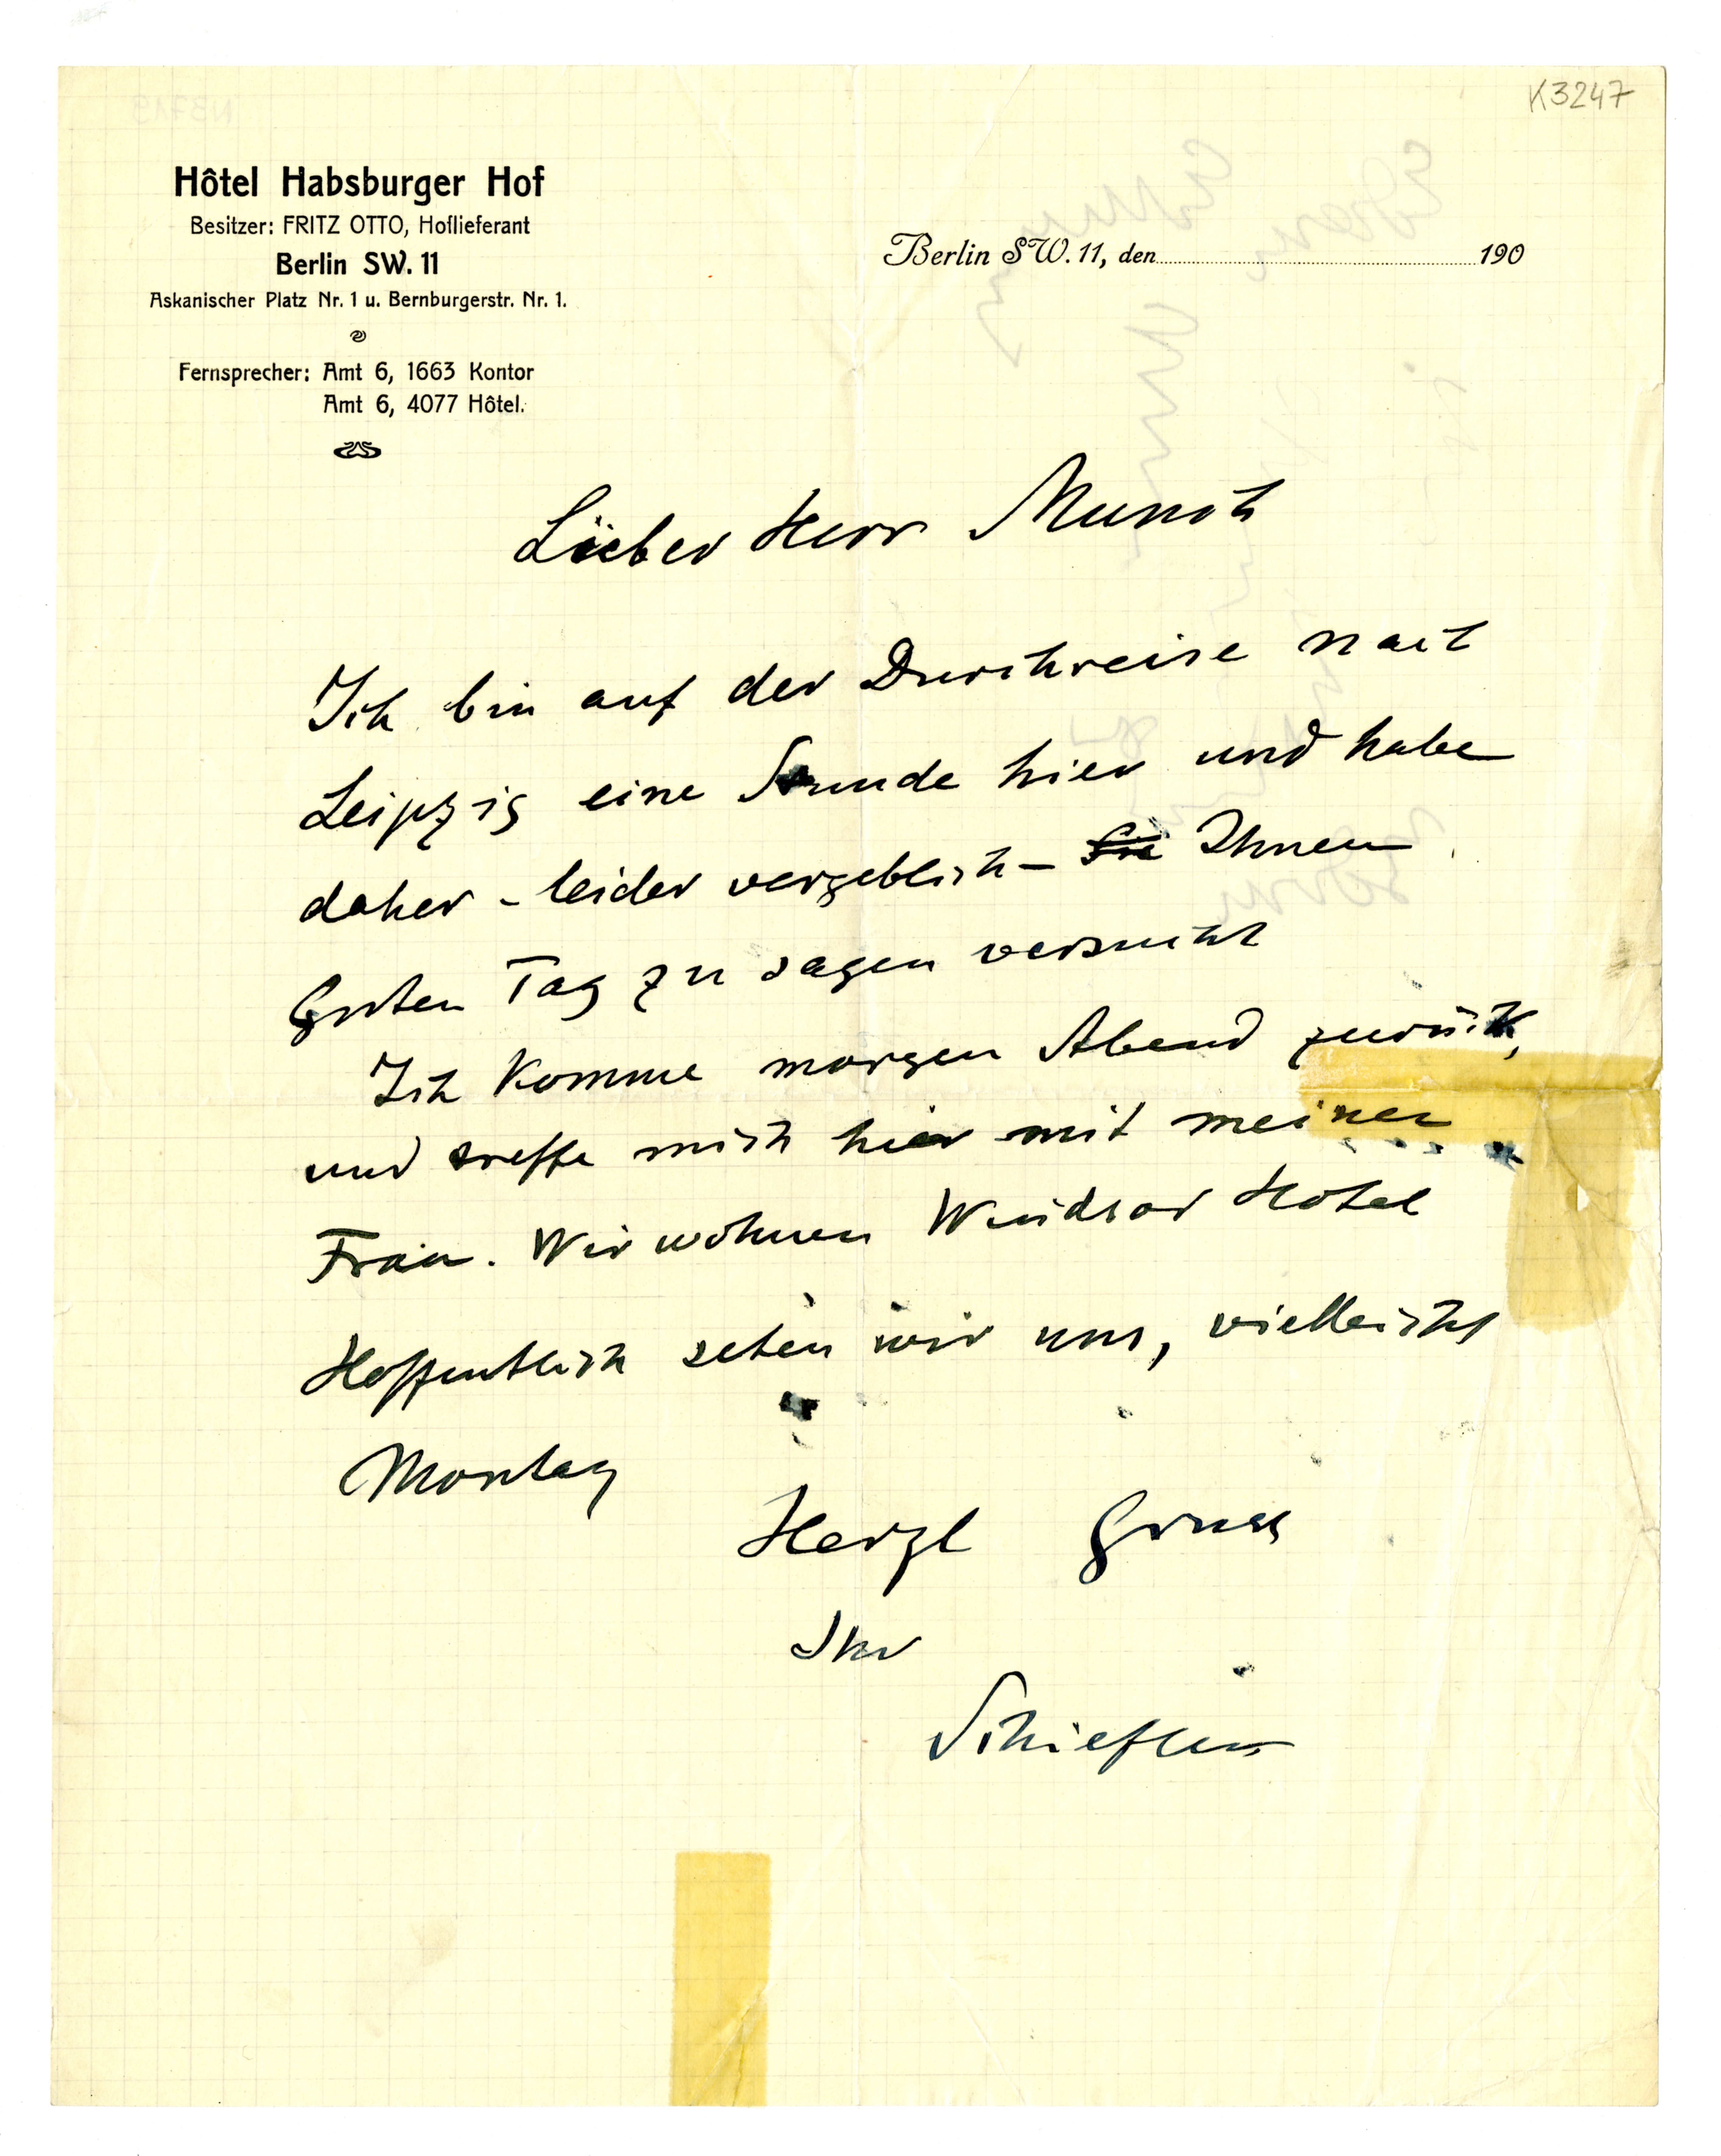 K3247
Hôtel Habsburger Hof
Besitzer: FRITZ OTTO, Hoflieferant
Berlin SW. 11
Askanischer Platz Nr. 1 u. Bernburgerstr. Nr. 1.
Fernsprecher: Amt 6, 1663 Kontor
Amt 6, 4077 Hôtel.
Berlin SW. 11, den 190
Lieber Herr Munch
Ich bin auf der Durchreise nach
Leipzig eine Stunde hier und habe
daher - leider vergeblich - Sie Ihnen
Guten Tag zu sagen versucht
Ich komme morgen Abend zurück,
und treffe mich hier mit meiner
Frau. Wir wohnen Windsor Hotel
Hoffentlich sehen wir uns, vielleicht
Montag
Herzl Gruss
Ihr
Schiefler